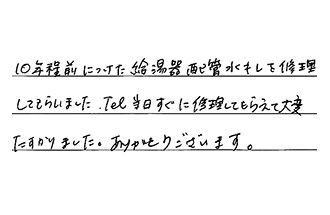 10年程前につけた給湯器配管水もレを修理
してもらいました.Tel当日すぐに修理してもらえて大変
たすかりました。ありがとうございます。